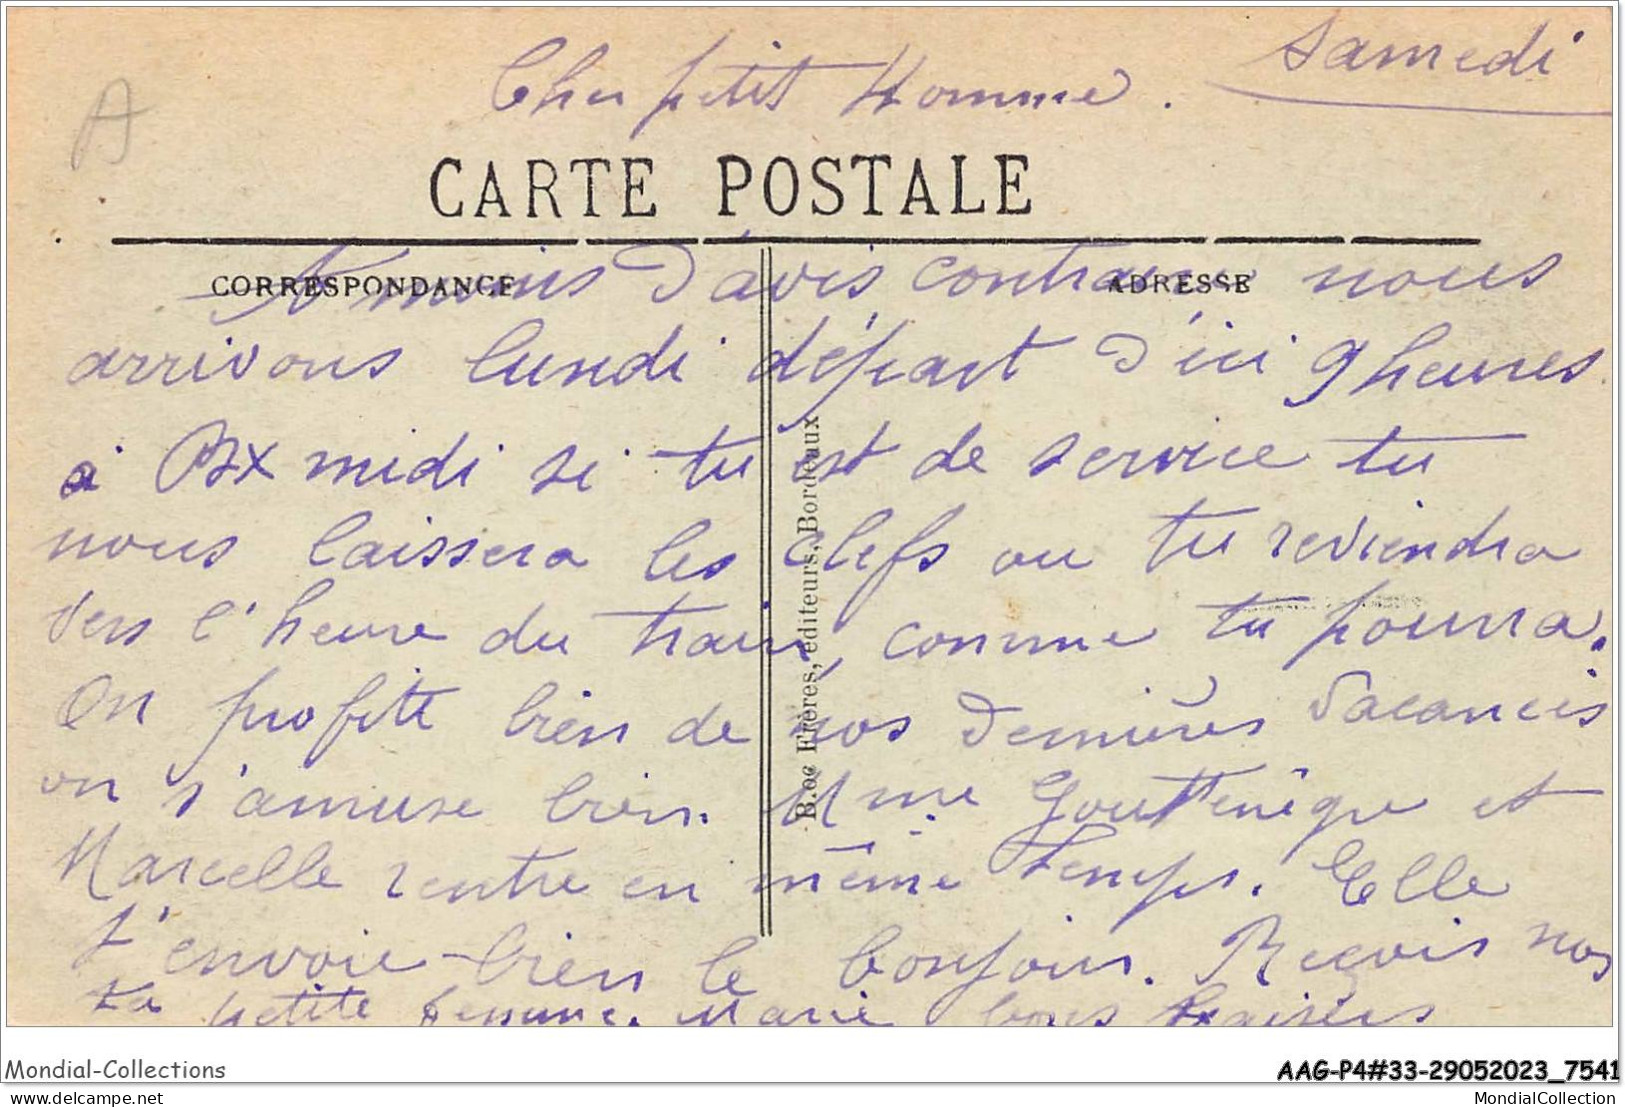 Samedi
Cher petit Homme.
A
CARTE POSTALE
CORRESPONDANCE
ADRESSE
A moins d'avis contraire nous
arrivons lundi départ d'ici 9 heures
à Bx midi si tu est de service tu
nous laissera les clefs ou tu reviendra
vers l'heure du train, comme tu pourra.
On profite bien de nos dernières vacances
on s'amuse bien. Mme et
Marcelle rentre en même temps. Elle
t'envoie bien le bonjour. Reçois nos
ta petite femme. Marie bons baisers
B.oc Frères, éditeurs, Bordeaux
Mondial-Collections
AAG-P4#33-29052023_7541
delcampe.net
MondialCollection